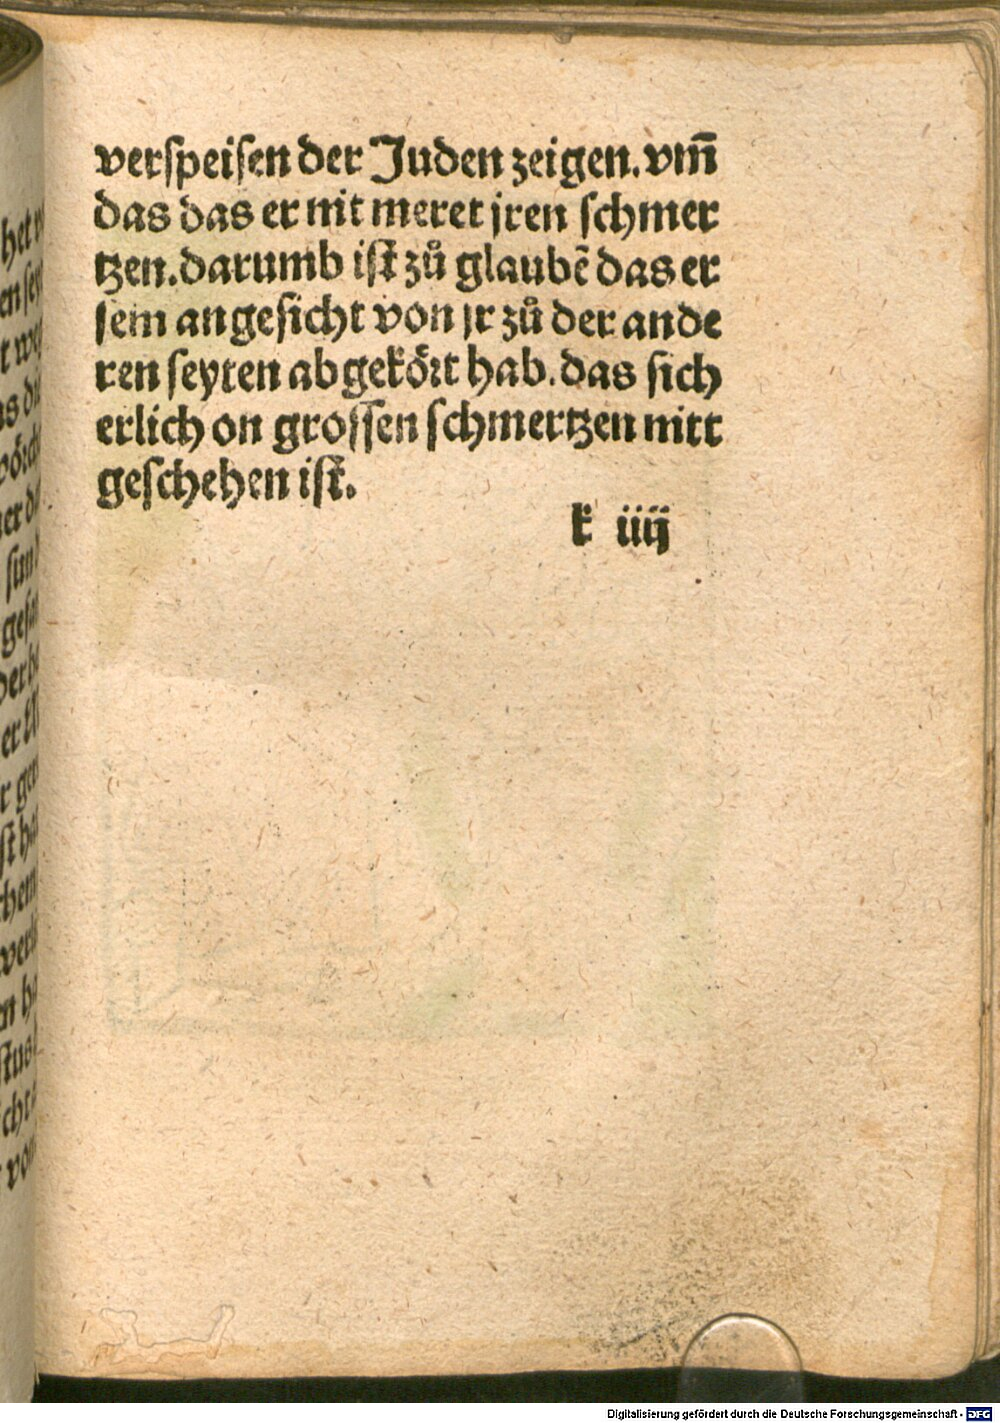 verſpeiſen der Juden zeigen. vm̄
das das er nit meret jren ſchmer
tzen. darumb iſt zů glaubē das er
ſein angeſicht von jr zů der ande
ren ſeyten abgekört hab. das ſich
erlich on groſſen ſchmertzen nitt
geſchehen iſt.
k iiij
Digitalisierung gefördert durch die Deutsche Forschungsgemeinschaft - DFG